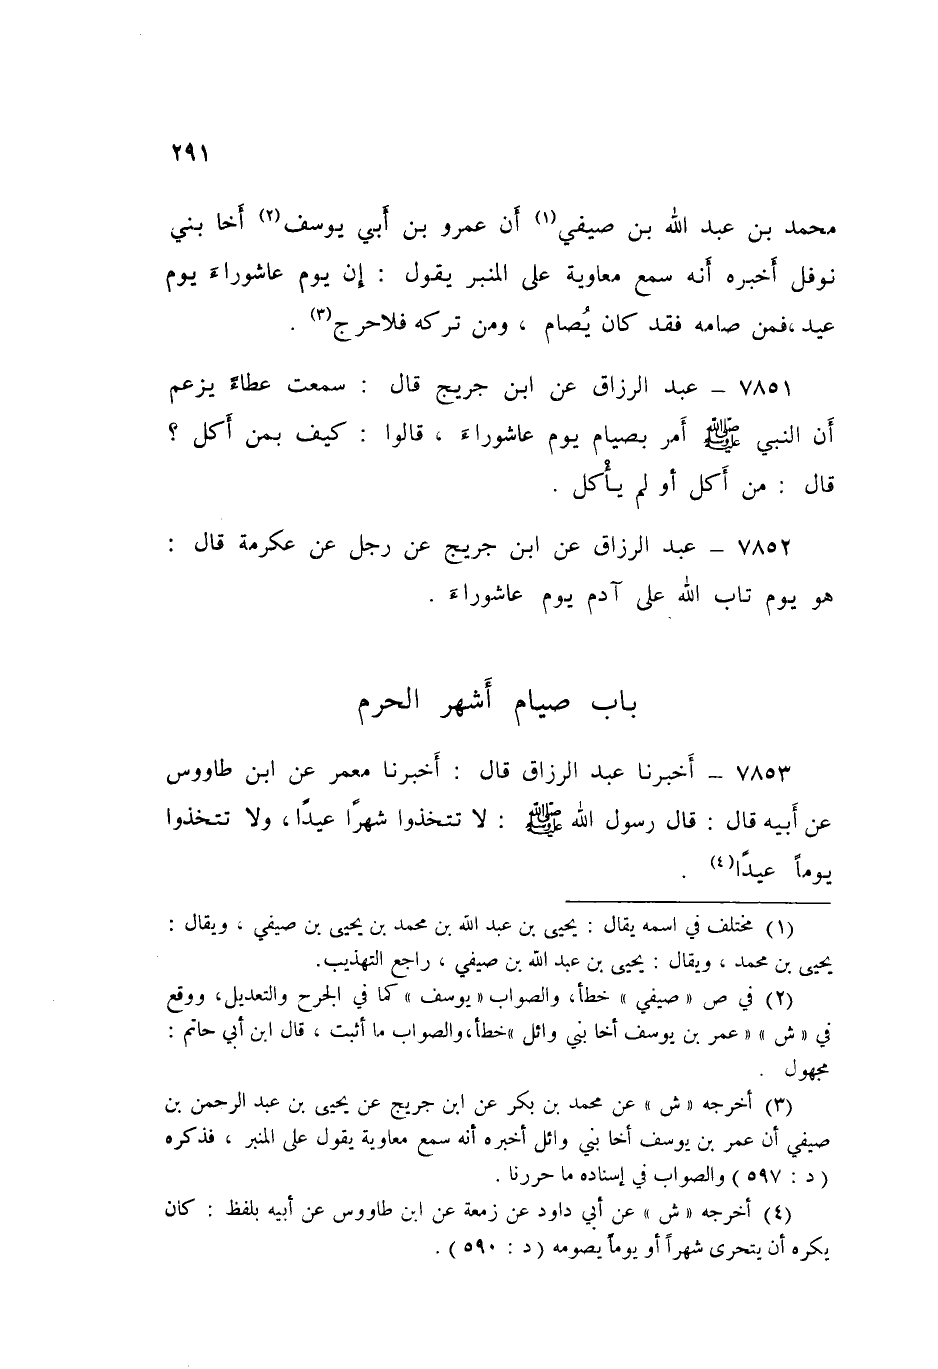 ٢٩١
محمد بن عبد الله بن صيفي(١) أن عمرو بن أبي يوسف(٢) أخا بني
نوفل أخبره أنه سمع معاوية على المنبر يقول : إن يوم عاشوراءَ يوم
عيد ،فمن صامه فقد كان يُصام ، ومن تركه فلاحرج(٣) .
٧٨٥١ – عبد الرزاق عن ابن جريج قال : سمعت عطاءً يزعم
أن النبي ﷺ أمر بصيام يوم عاشوراءَ ، قالوا : كيف بمن أكل ؟
قال : من أكل أو لم يأكل .
٧٨٥٢ – عبد الرزاق عن ابن جريج عن رجل عن عكرمة قال :
هو يوم تاب الله على آدم يوم عاشوراءَ .
باب صيام أشهر الحرم
٧٨٥٣ – أخبرنا عبد الرزاق قال : أخبرنا معمر عن ابن طاووس
عن أبيه قال : قال رسول الله ﷺ : لا تتخذوا شهرًا عيدًا، ولا تتخذوا
يوماً عيدًا(٤) .
(١) مختلف في اسمه يقال : يحيى بن عبد الله بن محمد بن يحيى بن صيفي ، ويقال :
يحيى بن محمد ، ويقال : يحيى بن عبد الله بن صيفي ، راجع التهذيب.
(٢) في ص « صيفي » خطأ، والصواب « يوسف » كما في الجرح والتعديل، ووقع
في « ش » « عمر بن يوسف أخا بني وائل »خطأ،والصواب ما أثبت ، قال ابن أبي حاتم :
مجهول .
(٣) أخرجه « ش » عن محمد بن بكر عن ابن جريج عن يحيى بن عبد الرحمن بن
صيفي أن عمر بن يوسف أخا بني وائل أخبره أنه سمع معاوية يقول على المنبر ، فذكره
( د : ٥٩٧ ) والصواب في إسناده ما حررنا .
(٤) أخرجه « ش » عن أبي داود عن زمعة عن ابن طاووس عن أبيه بلفظ : كان
يكره أن يتحرى شهراً أو يوماً يصومه ( د : ٥٩٠ ) .